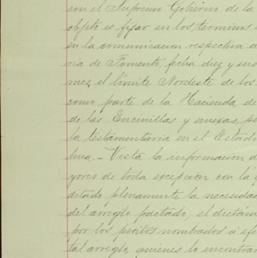 con el Supremo Gobierno de la
objeto es fijar en los terminos
en la comunicacion respectiva d
ría de Fomento, fecha diez y
mes, el límite Nordeste de los
como parte de la Hacienda de
de las Encinillas y anexas
la testamentaria en el Estado
hua. - Vista la informacion d
yores de toda excepcion con la q
ditado plenamente la necesidad
del arreglo pactado, el dictam
por los peritos nombrados á efe
tal arreglo, quienes lo encontra